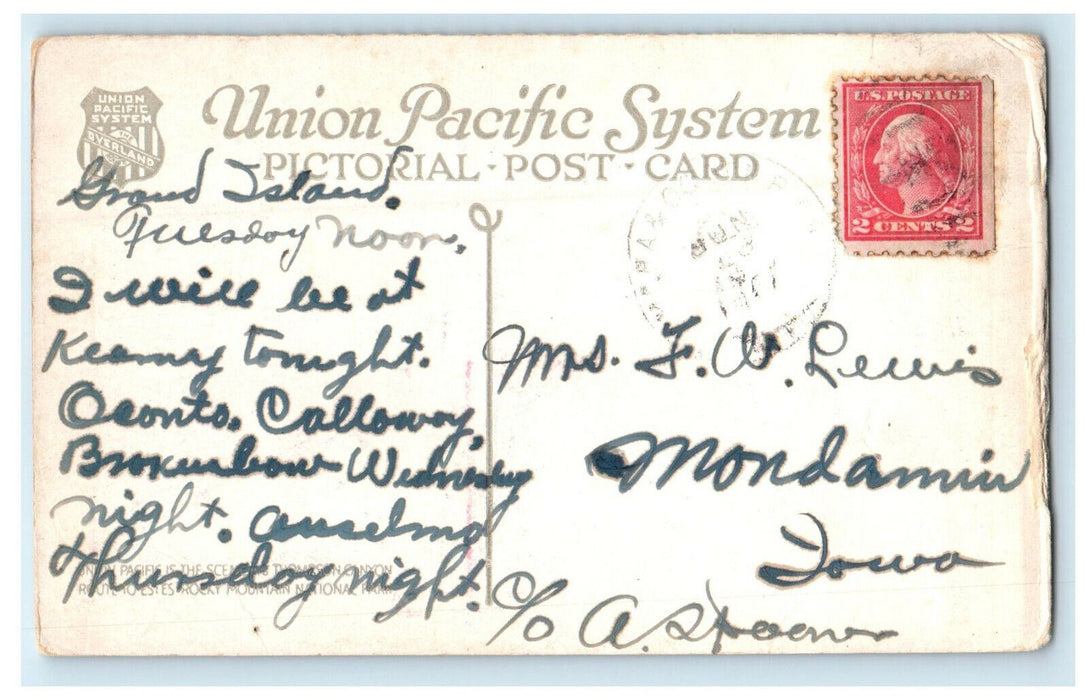 UNION
PACIFIC
SYSTEM
OVERLAND
Union Pacific System
PICTORIAL · POST · CARD
U.S. POSTAGE
2 CENTS 2
Grand Island.
Tuesday Noon.
I will be at
Kearney tonight.
Oconto. Calloway,
Brokenbow Wednesday
night. Anselmo
Thursday night.
UNION PACIFIC IS THE SCENIC THOMPSON CANYON
ROUTE TO ESTES-ROCKY MOUNTAIN NATIONAL PARK
JUN
Mrs. F. W. Lewis
Mondamin
Iowa
c/o A. S. Hoover